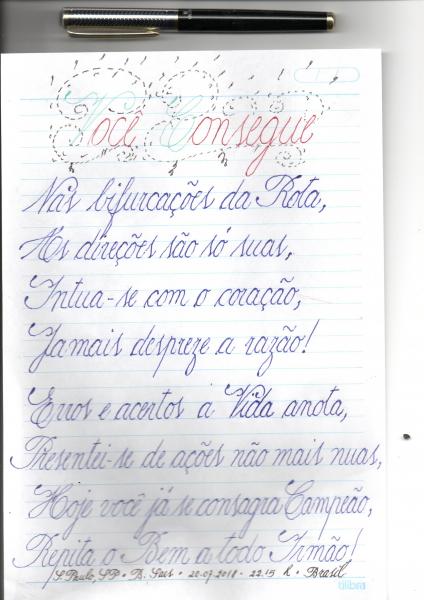 Você Consegue
Nas bifurcações da Rota,
As direções são só suas,
Intua-se com o coração,
Jamais despreze a razão!
Erros e acertos a Vida anota,
Presentei-se de ações não mais nuas,
Hoje você já se consagra Campeão,
Repita o Bem a todo Irmão!
S. Paulo, SP • B. Saes • 20-07-2018 - 22:15 h • Brasil
alibra